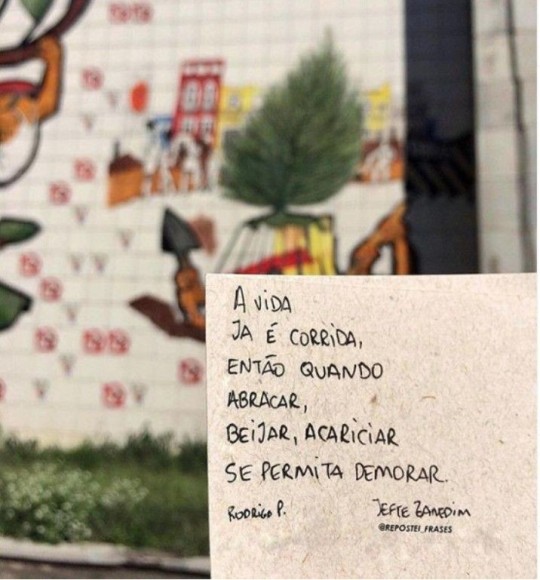 A VIDA
JA É CORRIDA,
ENTÃO QUANDO
ABRACAR,
BEIJAR, ACARICIAR
SE PERMITA DEMORAR.
RODRIGO P.
JEFTE ZANEDIM
@REPOSTEI_FRASES